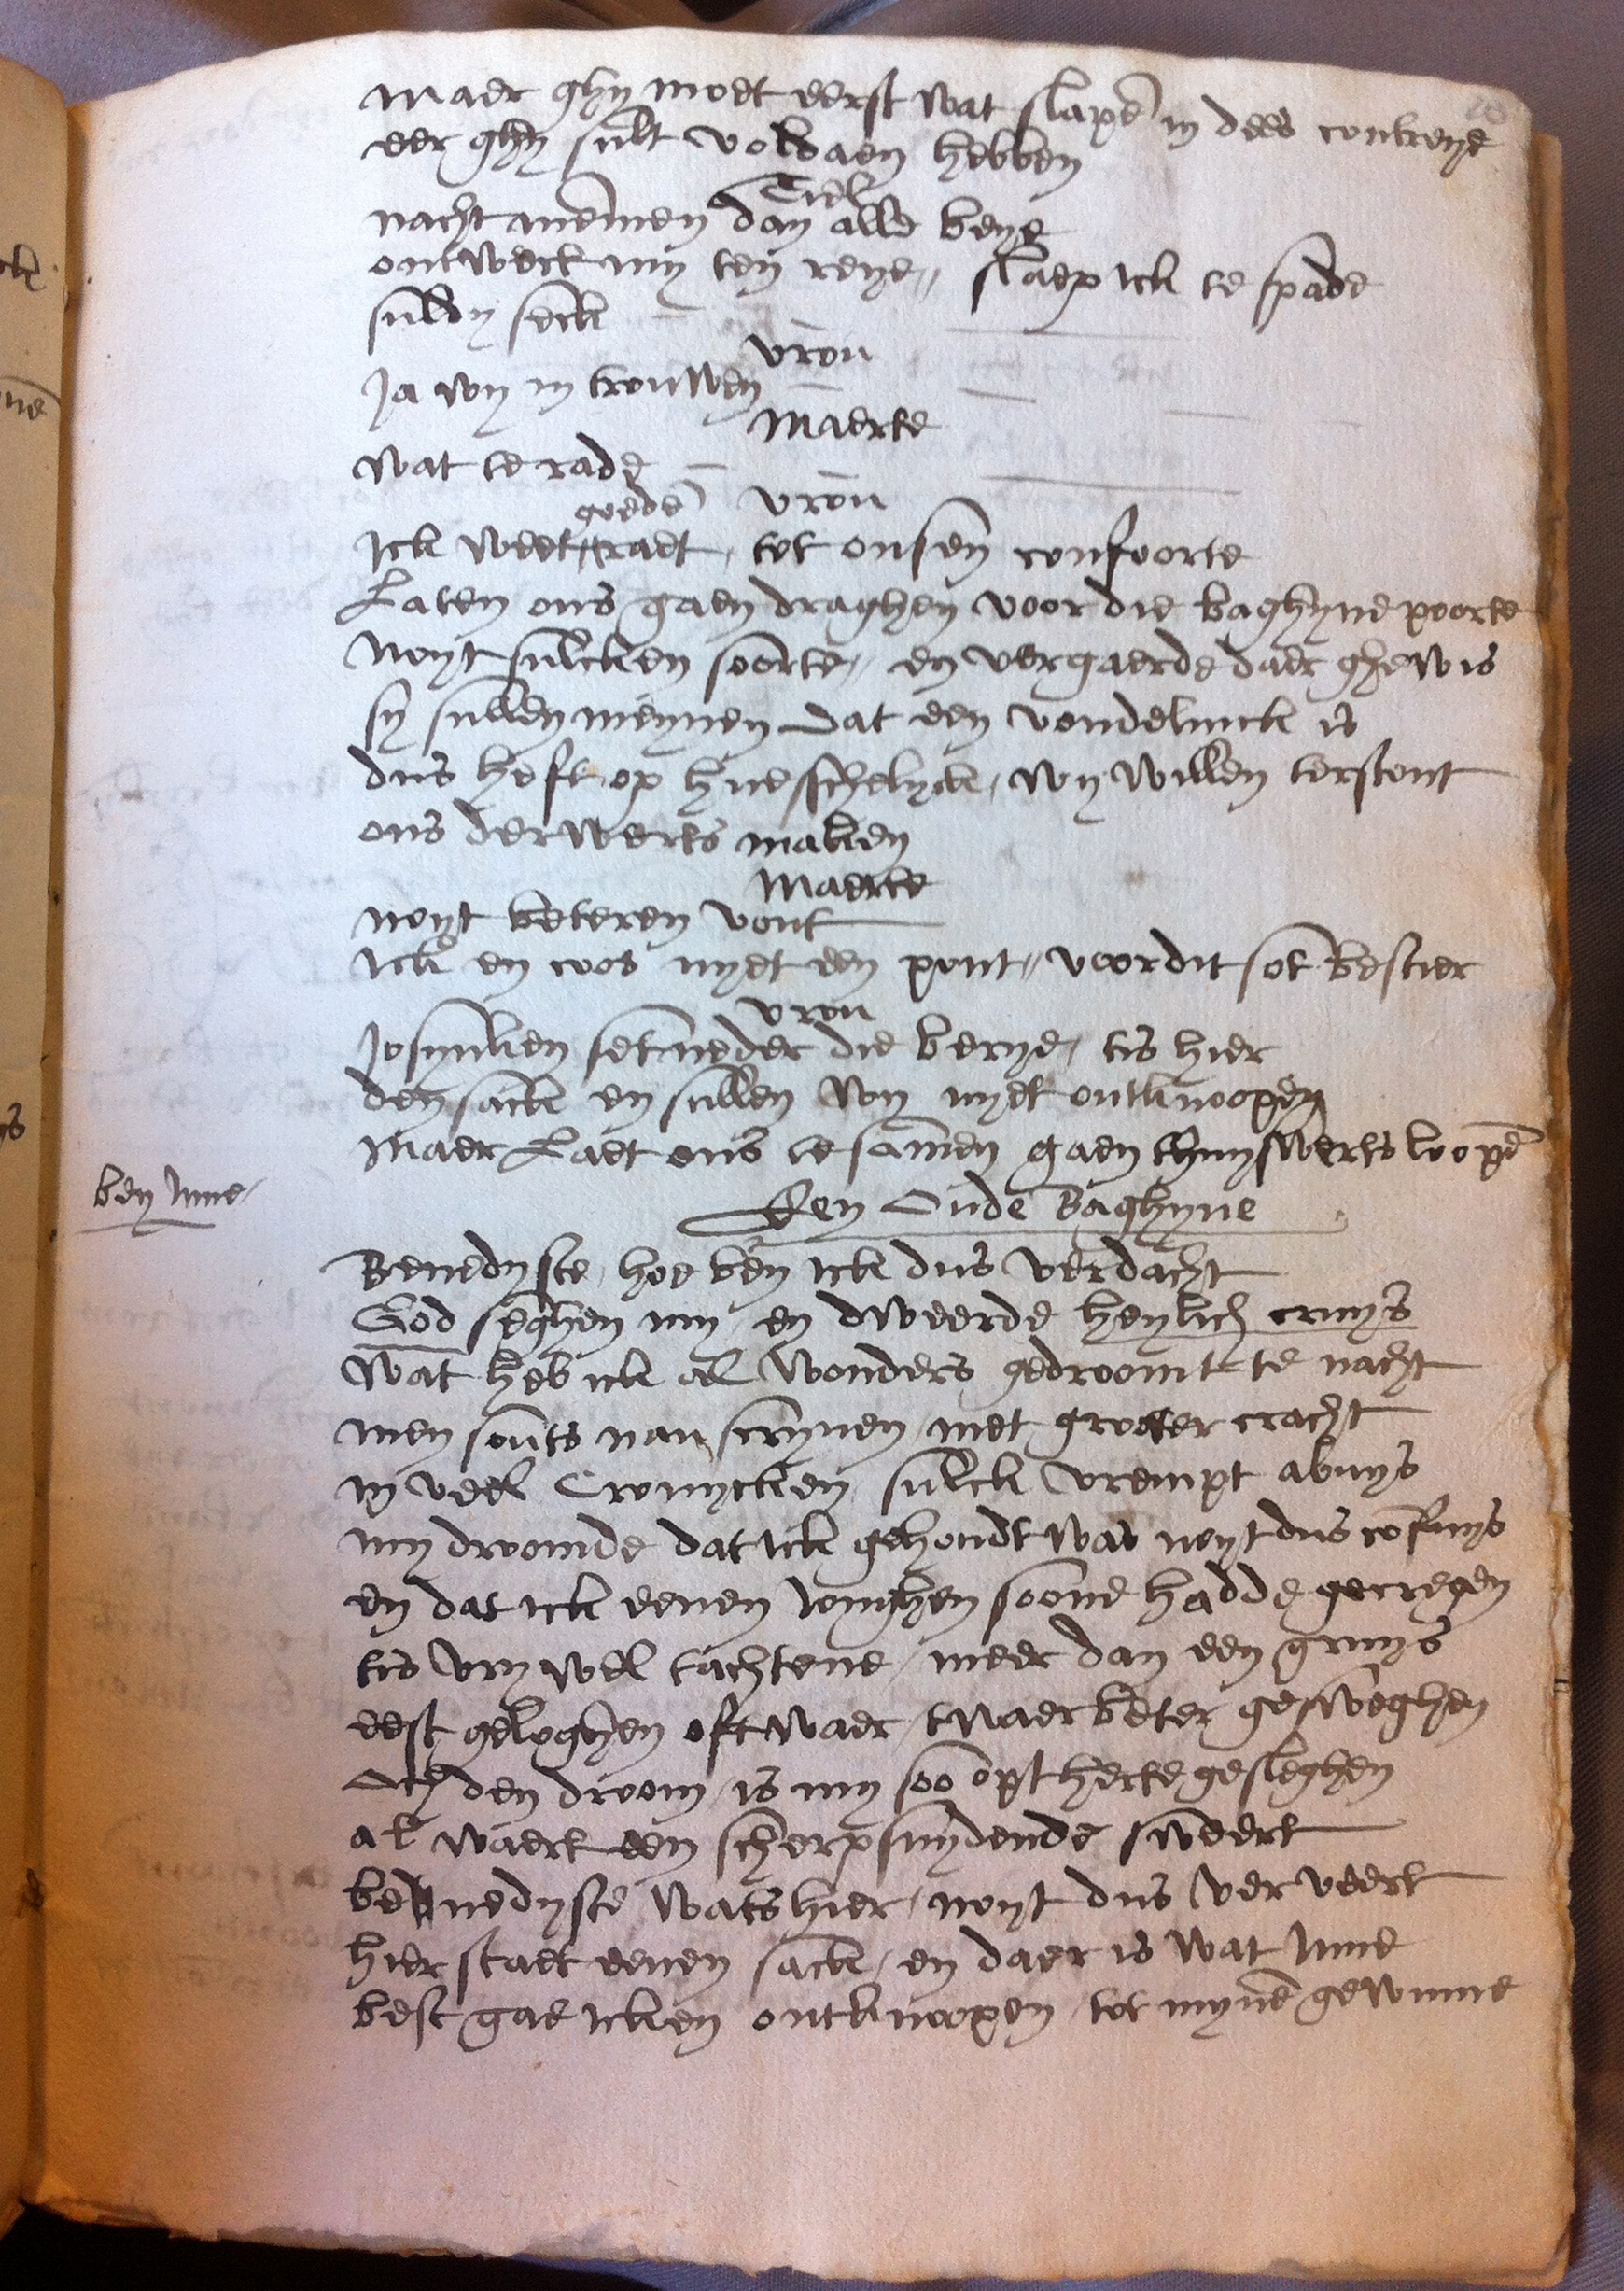 maer ghy moet eerst wat slapē in dees contreye
eer ghy sult voldaen hebben
Tiel
nacht mennen dan alle beye
ontweckt my ten reye,, slaep ick te spade
suldy seck
vrou
Ja wy in trouwen
maerte
wat te rade
vrou
goedē
Ick weet raet, tot onsen confoorte
Laten ons gaen draghen voor die baghyne poorte
noyt sulcken soorte,, en vergaerde daer ghewis
sy sullen meynen dat een vondelinck is
dus heft op hueschelyck, wy willen terstont
ons derwerts maken
Maerte
noyt beteren vont
Ick en coos nyet een pont,, voor dit sot bestier
vrou
Josynken set neder die berye, tis hier
den sack en sullen wy nyet ontknoopen
maer Laet ons te samen gaen thuyswerts loopē
ben Inne
Een Oude Baghyne
Benedyste, hoe ben ick dus verdacht
God seghen my, en dweerde heylich cruys
wat heb ick al wonders gedroomt te nacht
men souts nau scryven, met grooter cracht
in veel Cronycken, sulck vrempt abuys
my droomde dat ick gehoudt was noyt dus cōfuys
en dat ick eenen Jonghen soone hadde gecregen
tis vry wel tachtene, meer dan een gruys
eest geloghen oft waer, twaer beter gesweghen
Och den droom, is my soo opt herte gesleghen
al waert een scherpsnydende sweert
benedyste wats hier, noyt dus verveert
hier staet eenen sack, en daer is wat Inne
best gae icken ontknoopen, tot mynē gewinne